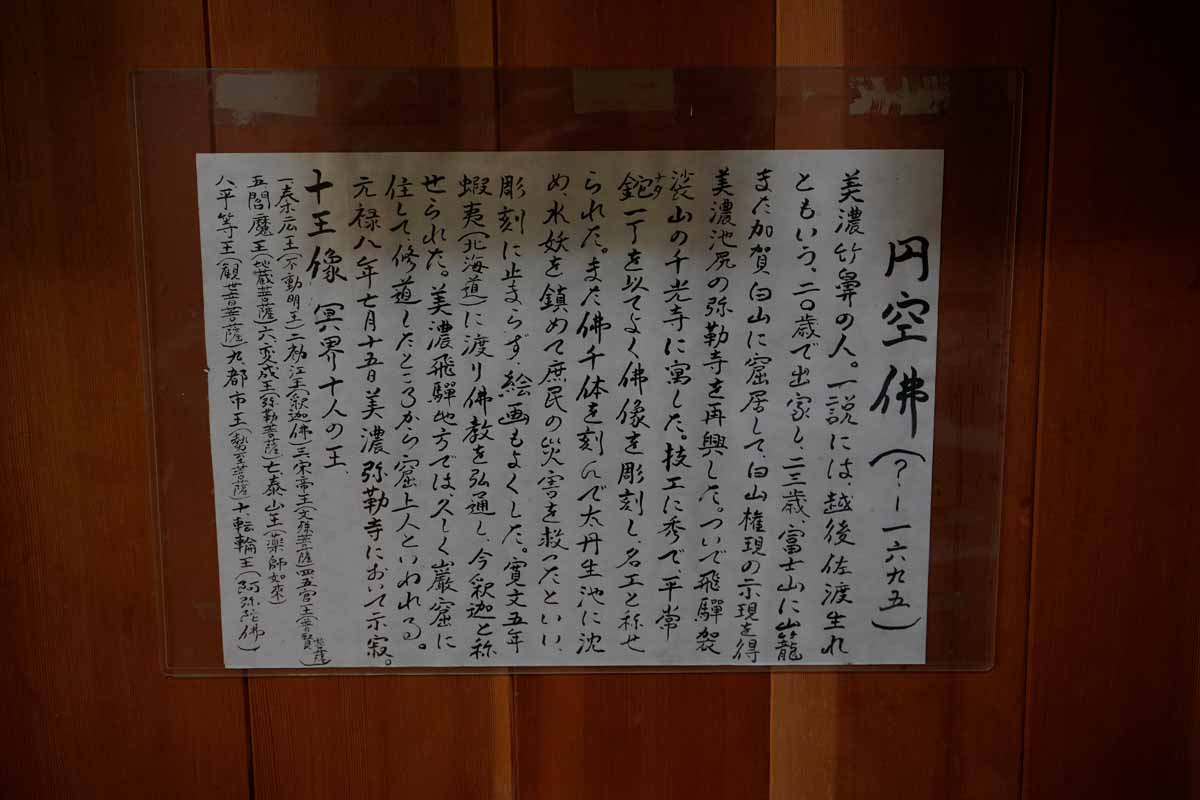 円空佛(?ー一六九五)
美濃竹鼻の人。一説には、越後佐渡生れ
ともいう、二〇歳で出家し、二三歳、富士山に山籠
また加賀白山に窟居して、白山権現の示現を得
美濃池尻の弥勒寺を再興した。ついで飛驒袈
裟山の千光寺に寓した。技工に秀で、平常
鉈ナタ一丁を以てよく佛像を彫刻し、名工と称せ
られた。また佛千体を刻んで太丹生池に沈
め、水妖を鎮めて庶民の災害を救ったといい、
彫刻に止まらず、絵画もよくした。寛文五年
蝦夷(北海道)に渡り佛教を弘通し、今釈迦と称
せられた。美濃飛驒地方では、久しく巌窟に
住して、修道したところから窟上人といわれる。
元禄八年七月十五日美濃弥勒寺において示寂。
十王像 冥界十人の王、
一秦広王(不動明王)二初江王(釈迦佛)三宋帝王(文殊菩薩)四五官王(普賢菩薩)
五閻魔王(地蔵菩薩)六、変成王(弥勒菩薩)七、泰山王(薬師如来)
八平等王(観世音菩薩)九、都市王(勢至菩薩)十転輪王(阿弥陀佛)